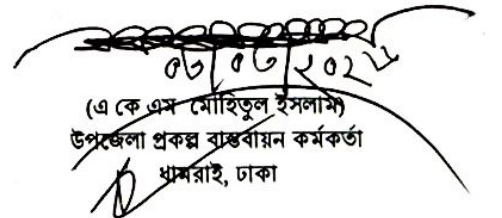 (এ কে এম মোহিতুল ইসলাম)
উপজেলা প্রকল্প বাস্তবায়ন কর্মকর্তা
ধামরাই, ঢাকা